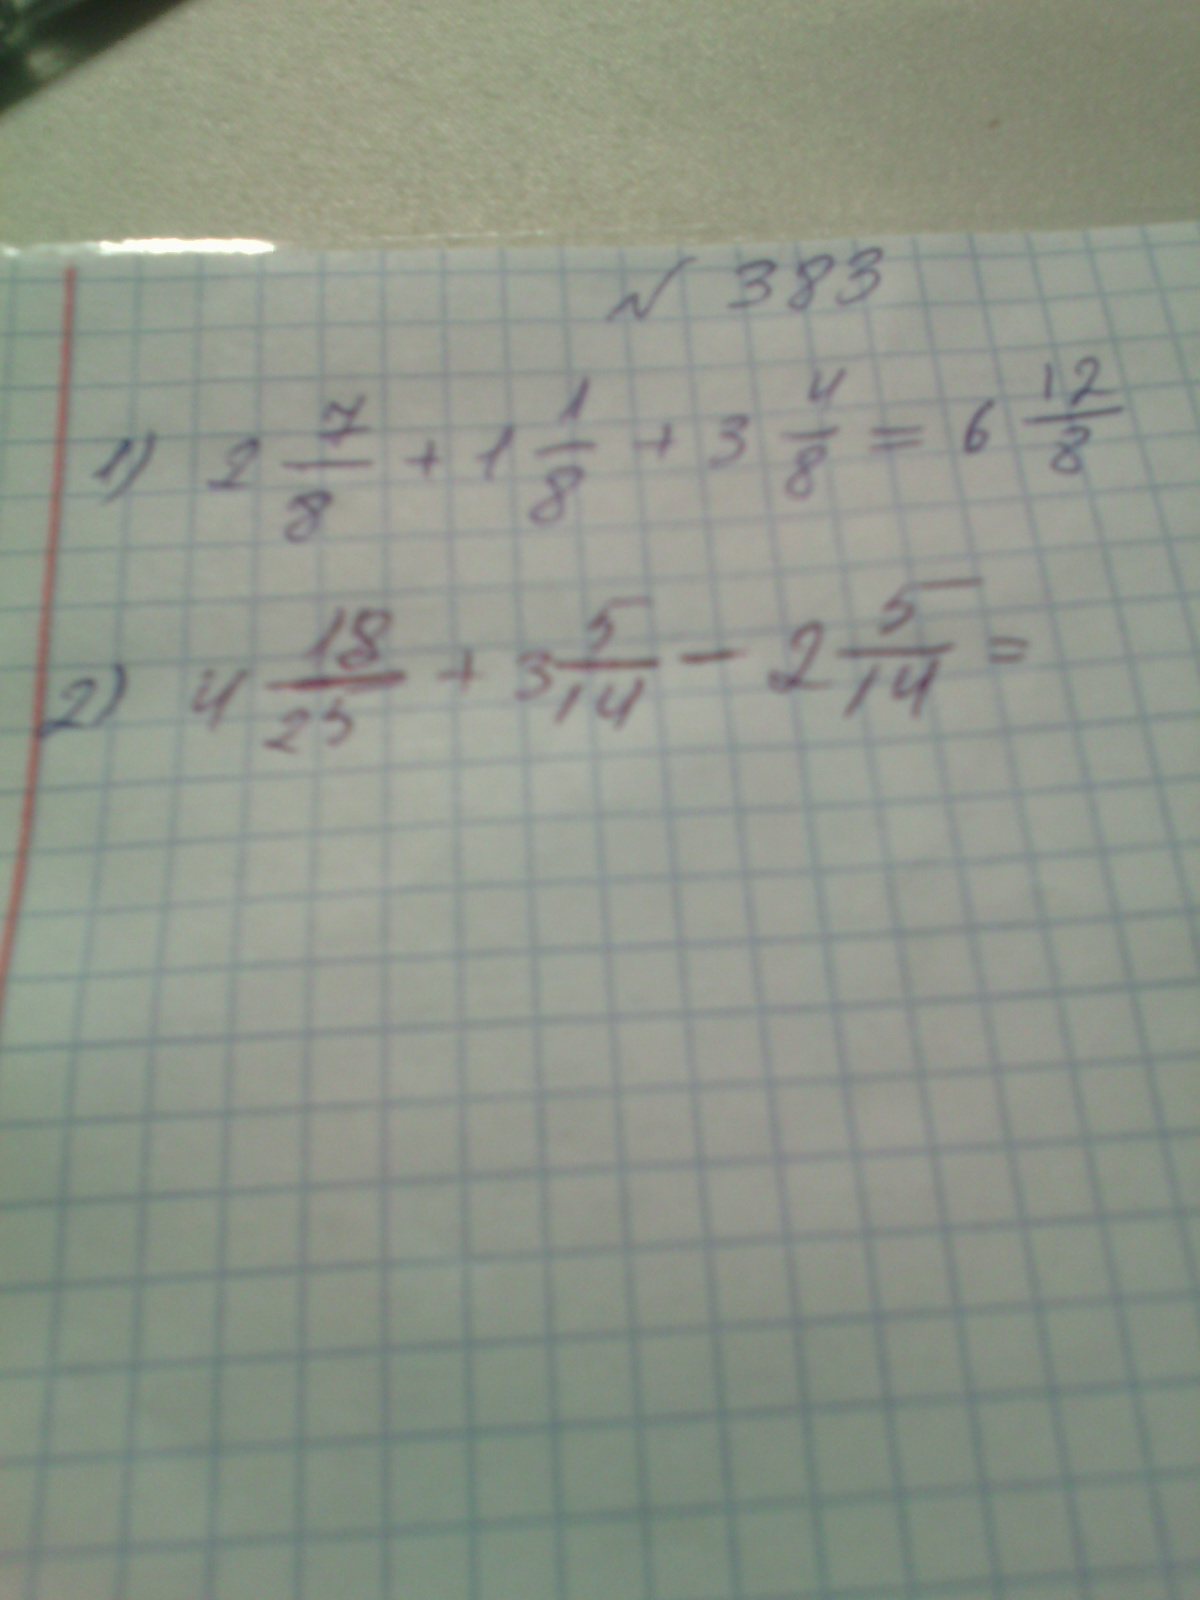 № 383
1) 2 7/8 + 1 1/8 + 3 4/8 = 6 12/8
2) 4 18/25 + 3 5/14 - 2 5/14 =